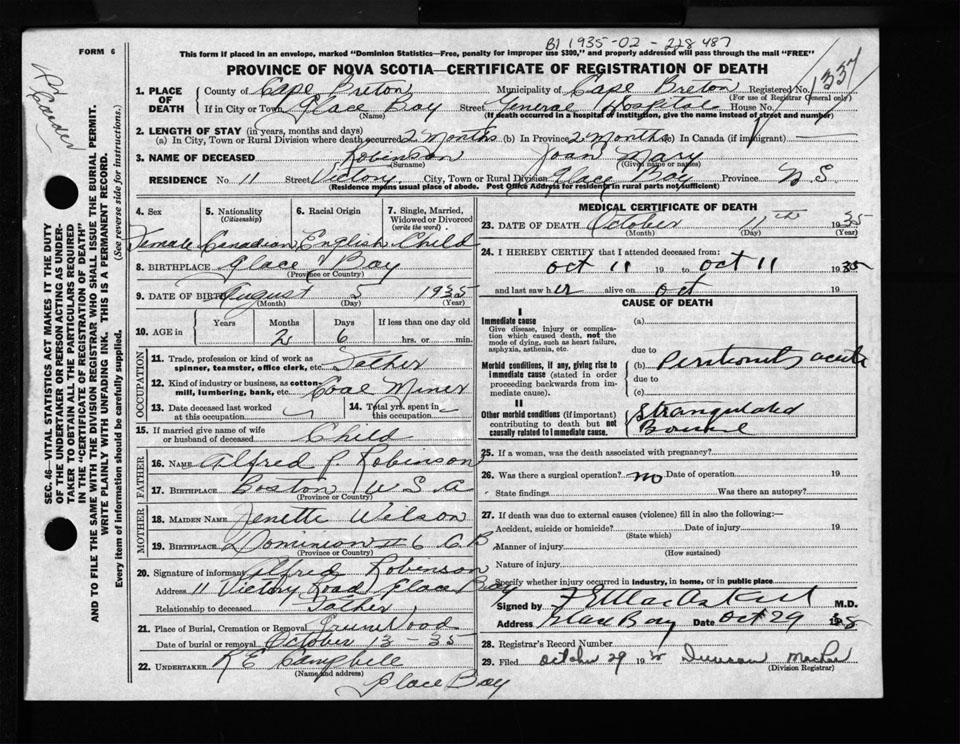 B1 1935-02-228487
FORM 6
This form if placed in an envelope, marked "Dominion Statistics—Free, penalty for improper use $300," and properly addressed will pass through the mail "FREE"
PROVINCE OF NOVA SCOTIA—CERTIFICATE OF REGISTRATION OF DEATH
1337
1. PLACE OF DEATH
County of Cape Breton Municipality of Cape Breton Registered No.
(For use of Registrar General only)
If in City or Town Glace Bay Street General Hospital House No.
(Name) (If death occurred in a hospital or institution, give the name instead of street and number)
2. LENGTH OF STAY (in years, months and days)
(a) In City, Town or Rural Division where death occurred 2 Months (b) In Province 2 Months (c) In Canada (if immigrant)
3. NAME OF DECEASED Robinson Joan Mary
(Surname) (Given name or names)
RESIDENCE No 11 Street Victory City, Town or Rural Division Glace Bay Province N S
(Residence means usual place of abode. Post Office Address for residents in rural parts not sufficient)
4. Sex
Female
5. Nationality
(Citizenship)
Canadian
6. Racial Origin
English
7. Single, Married, Widowed or Divorced
(write the word)
Child
8. BIRTHPLACE Glace Bay
(Province or Country)
9. DATE OF BIRTH August 5 1935
(Month) (Day) (Year)
10. AGE in
Years Months Days If less than one day old
2 6 hrs. or min.
OCCUPATION
11. Trade, profession or kind of work as spinner, teamster, office clerk, etc. Father
12. Kind of industry or business, as cotton-mill, lumbering, bank, etc. Coal Miner
13. Date deceased last worked at this occupation
14. Total yrs. spent in this occupation
15. If married give name of wife or husband of deceased Child
FATHER
16. NAME Alfred P. Robinson
17. BIRTHPLACE Boston U S A
(Province or Country)
MOTHER
18. MAIDEN NAME Jenette Wilson
19. BIRTHPLACE Dominion #6 C B
(Province or Country)
20. Signature of informant Alfred Robinson
Address 11 Victory Road Glace Bay
Relationship to deceased Father
21. Place of Burial, Cremation or Removal
Date of burial or removal October 13-35
22. UNDERTAKER R E Campbell
(Name and address)
Glace Bay
MEDICAL CERTIFICATE OF DEATH
23. DATE OF DEATH October 11th 1935
(Month) (Day) (Year)
24. I HEREBY CERTIFY that I attended deceased from:
Oct 11 19 to Oct 11 1935
and last saw her alive on Oct 19
CAUSE OF DEATH
I
Immediate cause
Give disease, injury or complication which caused death, not the mode of dying, such as heart failure, asphyxia, asthenia, etc.
(a)
due to
Morbid conditions, if any, giving rise to immediate cause (stated in order proceeding backwards from immediate cause).
(b) Peritonitis acute
due to
(c)
II
Other morbid conditions (if important) contributing to death but not causally related to immediate cause.
Strangulated
25. If a woman, was the death associated with pregnancy?
26. Was there a surgical operation? no Date of operation 19
State findings Was there an autopsy?
27. If death was due to external causes (violence) fill in also the following:—
Accident, suicide or homicide? Date of injury 19
(State which)
Manner of injury
(How sustained)
Nature of injury
Specify whether injury occurred in industry, in home, or in public place
Signed by M.D.
Address Glace Bay Date Oct 29
28. Registrar's Record Number
29. Filed October 29 19 Duncan
(Division Registrar)
SEC. 46—VITAL STATISTICS ACT MAKES IT THE DUTY
OF THE UNDERTAKER OR PERSON ACTING AS UNDER-
TAKER TO OBTAIN ALL THE PARTICULARS REQUIRED
IN THE "CERTIFICATE OF REGISTRATION OF DEATH"
AND TO FILE THE SAME WITH THE DIVISION REGISTRAR WHO SHALL ISSUE THE BURIAL PERMIT.
WRITE PLAINLY WITH UNFADING INK. THIS IS A PERMANENT RECORD.
Every item of information should be carefully supplied. (See reverse side for instructions.)